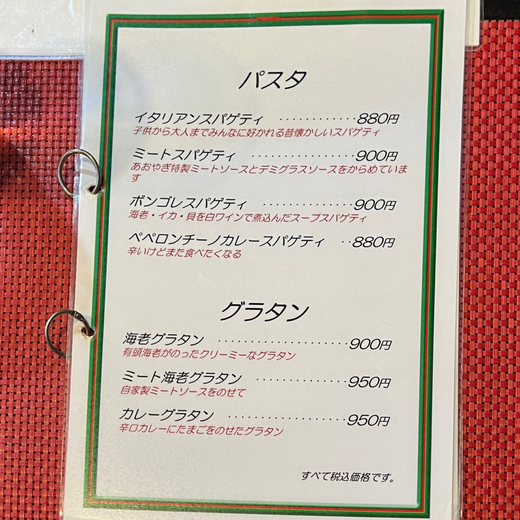 パスタ
イタリアンスパゲティ ············ 880円
子供から大人までみんなに好かれる昔懐かしいスパゲティ
ミートスパゲティ ················· 900円
あおやぎ特製ミートソースとデミグラスソースをからめていま
す
ボンゴレスパゲティ ··············· 900円
海老・イカ・貝を白ワインで煮込んだスープスパゲティ
ペペロンチーノカレースパゲティ ·· 880円
辛いけどまた食べたくなる
グラタン
海老グラタン ····················· 900円
有頭海老がのったクリーミーなグラタン
ミート海老グラタン ················ 950円
自家製ミートソースをのせて
カレーグラタン ··················· 950円
辛口カレーにたまごをのせたグラタン
すべて税込価格です。